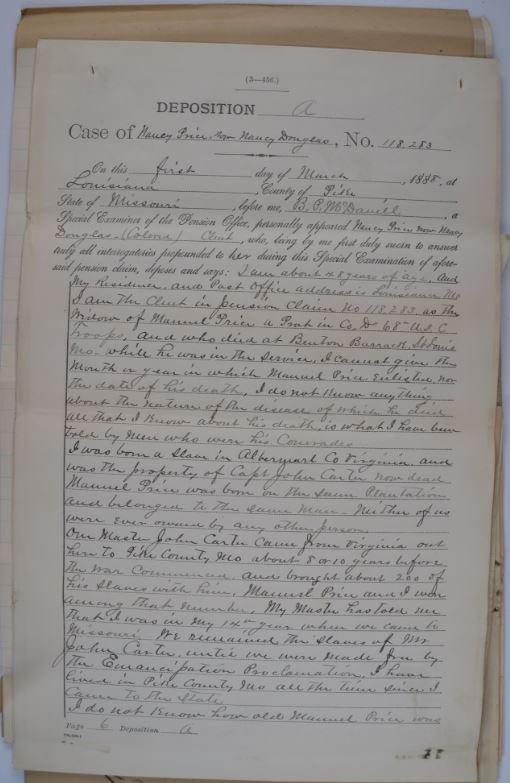 (3—456.)
DEPOSITION A
Case of Nancy Price, now Nancy Douglas, No. 118,283
On this first day of March, 1888, at
Louisiana, County of Pike
State of Missouri, before me, B. P. McDaniel, a
Special Examiner of the Pension Office, personally appeared Nancy Price now Nancy
Douglas—(Colored) Clmt, who, being by me first duly sworn to answer
truly all interrogatories propounded to her during this Special Examination of afore-
said pension claim, deposes and says: I am about 48 years of age, and
My Residence, and Post Office address is Louisiana Mo
I am the Clmt in Pension Claim No 118,283. as the
Widow of Manuel Price a Priv in Co, D 68" U.S.C
Troops, and who died at Benton Barrack, St Louis
Mo. while he was in the Service, I cannot give the
Month or year in which Manuel Price Enlisted, nor
the date of his death, I do not know anything
about the nature of the disease of which he died
all that I know about his death, is what I have been
told by men who were his Comrades
I was born a Slave in Albermarl Co Virginia, and
was the property of Capt John Carter now dead
Manuel Price was born on the same Plantation
and belonged to the same Man— Neither of us
were ever owned by any other person,
Our Master John Carter came from Virginia out
here to Pike County Mo about 8 or 10 years before
the war commenced, and brought about 200 of
his slaves with him, Manuel Price and I were
among that number, My Master has told me
that I was in my year when we came to
Missouri. We remained the slaves of Mr
John Carter, until we were made free by
the Emancipation Proclamation, I have
lived in Pike County Mo all the time since I
came to the State
I do not know how old Manuel Price was
Page 6 Deposition A